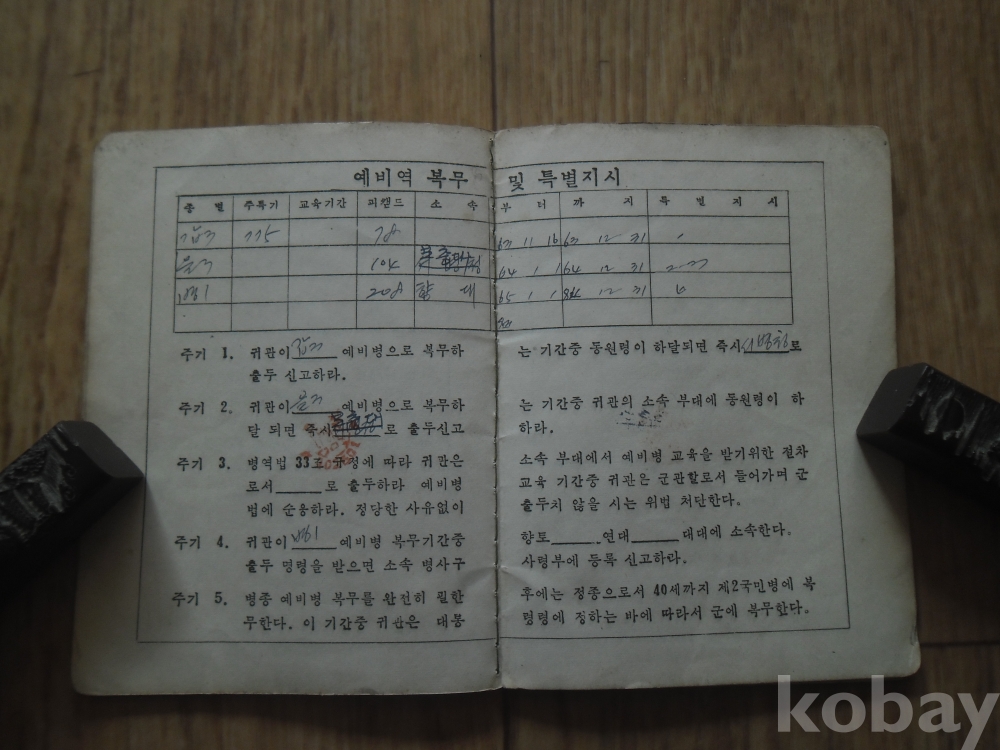 예비역 복무 및 특별지시
종 별 주특기 교육기간 피캘드 소 속 부 터 까 지 특 별 지 시
775 78 63 11 16 63 12 31
104 64 1 1 64 12 31
208 향 대 65 1 1 12 31
주기 1. 귀관이 예비병으로 복무하는 기간중 동원령이 하달되면 즉시 로
출두 신고하라.
주기 2. 귀관이 예비병으로 복무하는 기간중 귀관의 소속 부대에 동원령이 하
달 되면 즉시 로 출두신고하라.
주기 3. 병역법 33조 규정에 따라 귀관은 소속 부대에서 예비병 교육을 받기위한 절차
로서______로 출두하라 예비병 교육 기간중 귀관은 군관할로서 들어가며 군
법에 순응하라. 정당한 사유없이 출두치 않을 시는 위법 처단한다.
주기 4. 귀관이 예비병 복무기간중 향토______연대______대대에 소속한다.
출두 명령을 받으면 소속 병사구사령부에 등록 신고하라.
주기 5. 병종 예비병 복무를 완전히 필한 후에는 정종으로서 40세까지 제2국민병에 복
무한다. 이 기간중 귀관은 대통령령에 정하는 바에 따라서 군에 복무한다.
kobay